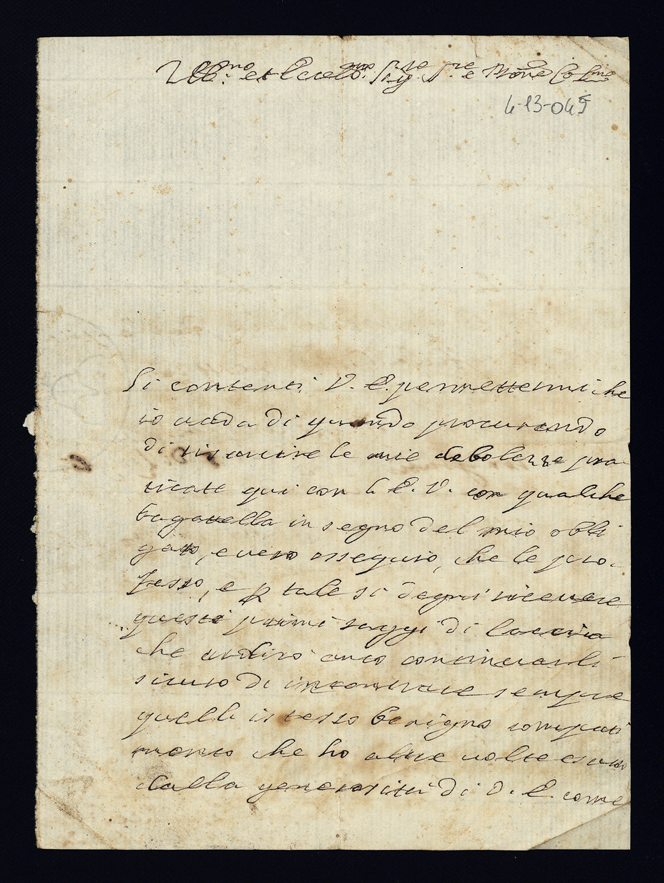 Ill.mo et Ecc.mo Sig.re Sig.re e P'rone Col.mo
4-13-045
Si contenti V. E. permettermi che
io vada di quando procurando
di risarcire le mie debolezze pra
ticate qui con l' E. V. con qualche
bagattella in segno del mio obli
gato, e vero ossequio, che le pro-
fesso, e p tale si degni ricevere
questi primi saggi di caccia
che ardirò anco continuarli
sicuro di incontrare sempre
quelli istesso benigno compati
mento che ho altre volte
dalla generosità di V. E. come